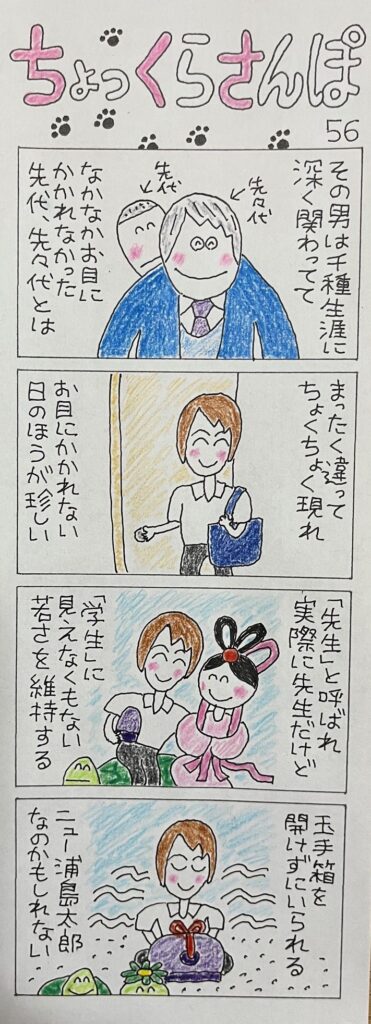 ちょっくらさんぽ
56
その男は千種生涯に
深く関わってて
先々代
先代
なかなかお目に
かかれなかった
先代、先々代とは
まったく違って
ちょくちょく現れ
お目にかかれない
日のほうが珍しい
「先生」と呼ばれ
実際に先生だけど
「学生」に
見えなくもない
若さを維持する
玉手箱を
開けずにいられる
ニュー浦島太郎
なのかもしれない